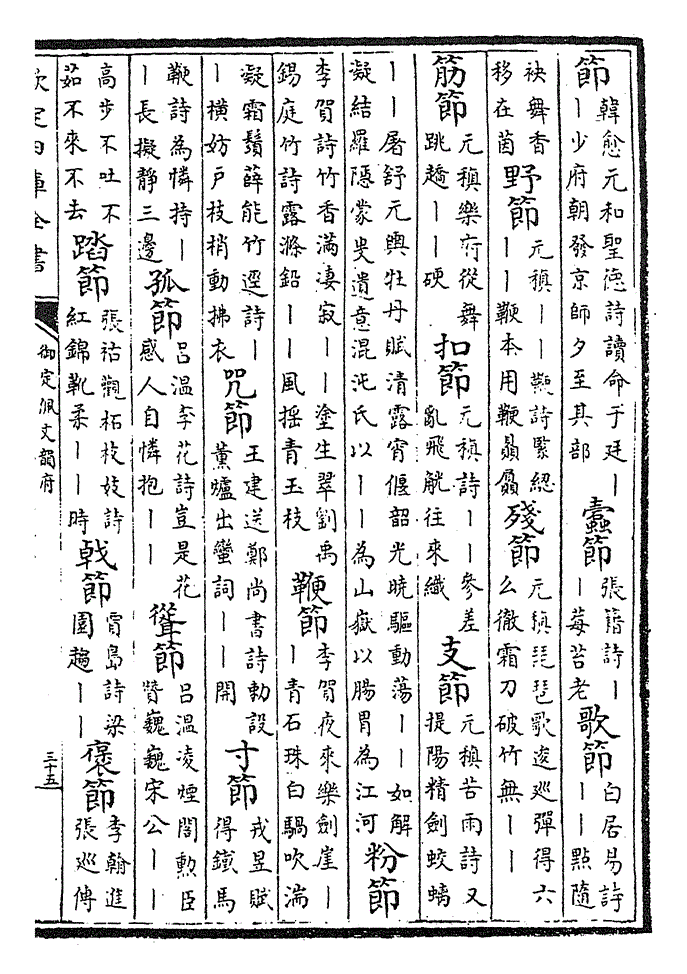 節韓愈元和聖徳詩讀命于廷丨丨少府朝發京師夕至其部 蠹節張籍詩丨丨莓苔老 歌節白居易詩丨丨點隨
袂舞香移在茵 野節元稹丨丨鞭詩緊綛丨丨鞭本用鞭贔屭 殘節元稹琵琶歌逡巡彈得六么徹霜刀破竹無丨丨
筋節元稹樂府從舞跳趫丨丨硬 扣節元稹詩丨丨參差亂飛觥往來織 支節元稹苦雨詩又提陽精劍蛟螭
丨丨屠舒元輿牡丹賦清露宵偃韶光曉驅動蕩丨丨如解凝結羅隱蒙叟遺意混沌氏以丨丨為山嶽以腸胃為江河 粉節
李賀詩竹香滿淒寂丨丨塗生翠劉禹錫庭竹詩露滌鉛丨丨風摇青玉枝 鞭節李賀夜來樂劍崖丨丨青石珠白騧吹湍
凝霜鬢薛能竹逕詩丨丨横妨戶枝梢動拂衣 咒節王建送鄭尚書詩勅設薰爐出蠻詞丨丨開 寸節戎昱賦得鐵馬
鞭詩為憐持丨丨長擬靜三邊 孤節吕温李花詩豈是花感人自憐抱丨丨 聳節吕温凌煙閣勲臣贊巍巍宋公丨丨
高步不吐不茹不來不去 踏節張祜觀柘枝妓詩紅錦靴柔丨丨時 戟節賈島詩梁園趨丨丨 褒節李翰進張巡傳
欽定四庫全書 御定佩文韻府 三十五